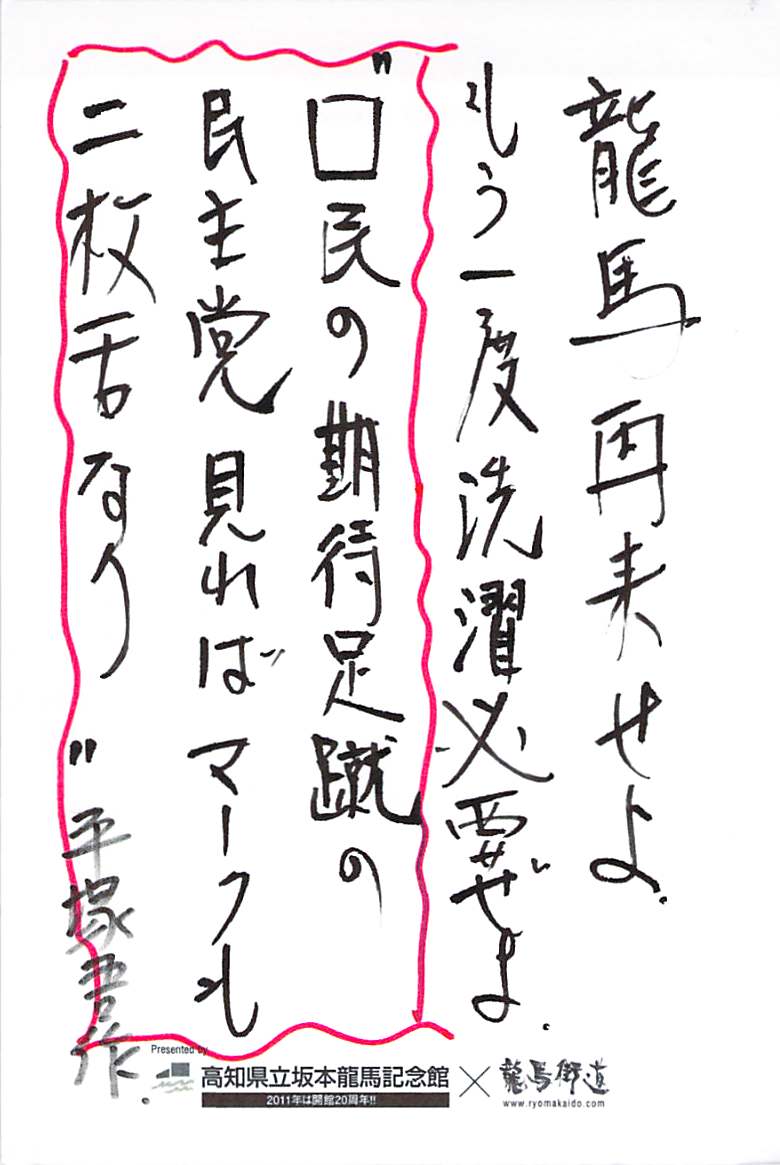 龍馬再来せよ.
もう一度洗濯必要ぜよ.
"口民の期待足蹴の
民主党見ればマークも
二枚舌なり"
平塚吾作.
Presented by
高知県立坂本龍馬記念館 × 龍馬街道
2011年は開館20周年!!
www.ryomakaido.com